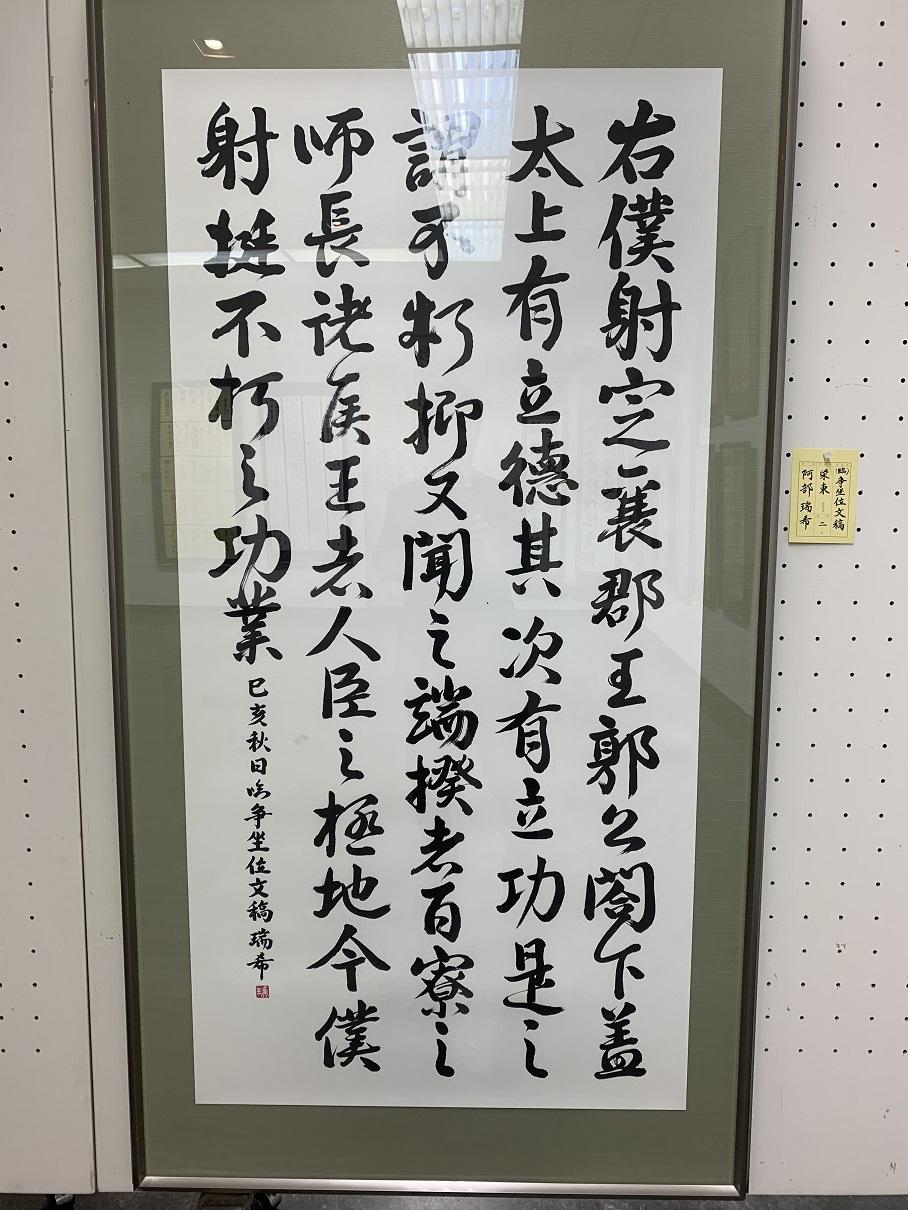 右僕射定襄郡王郭公閣下蓋
太上有立德其次有立功是之
謂不朽抑又聞之端揆者百寮之
师長诸侯王者人臣之極地今僕
射挺不朽之功業
己亥秋日临争坐位文稿瑞希
(臨)争坐位文稿
栄東 二
阿部瑞希